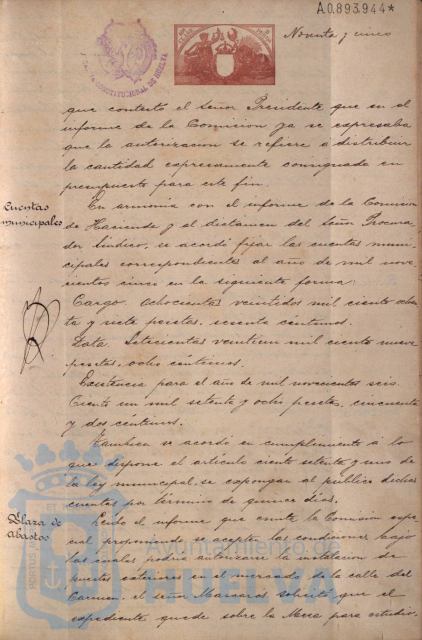 A0.893.944*
Noventa y cinco
que contestó el señor Presidente que en el
informe de la Comision ya se expresaba
que la autorizacion se refiere a distribuir
la cantidad expresamente consignada en
presupuesto para este fin.
Cuentas
municipales
En armonia con el informe de la Comision
de Hacienda y el dictamen del señor Procura-
dor Sindico, se acordó fijar las cuentas muni-
cipales correspondientes al año de mil nove-
cientos cinco en la siguiente forma:
Cargo. Ochocientas veintidos mil ciento ochen-
ta y siete pesetas, sesenta céntimos.
Data. Setecientas veintiun mil ciento nueve
pesetas, ocho céntimos.
Existencia para el año de mil novecientos seis.
Ciento un mil setenta y ocho pesetas, cincuenta
y dos céntimos.
Tambien se acordó en cumplimiento á lo
que dispone el artículo ciento setenta y uno de
la ley municipal, se expongan al publico dichas
cuentas por término de quince dias.
Plaza de
abastos
Leido el informe que emite la Comision espe-
cial proponiendo se acepten las condiciones bajo
las cuales podria autorizarse la instalacion de
puestos exteriores en el mercado de la calle del
Carmen, el señor Mascaros solicitó que el
expediente quede sobre la Mesa para estudio.
Ayuntamiento de
HUELVA